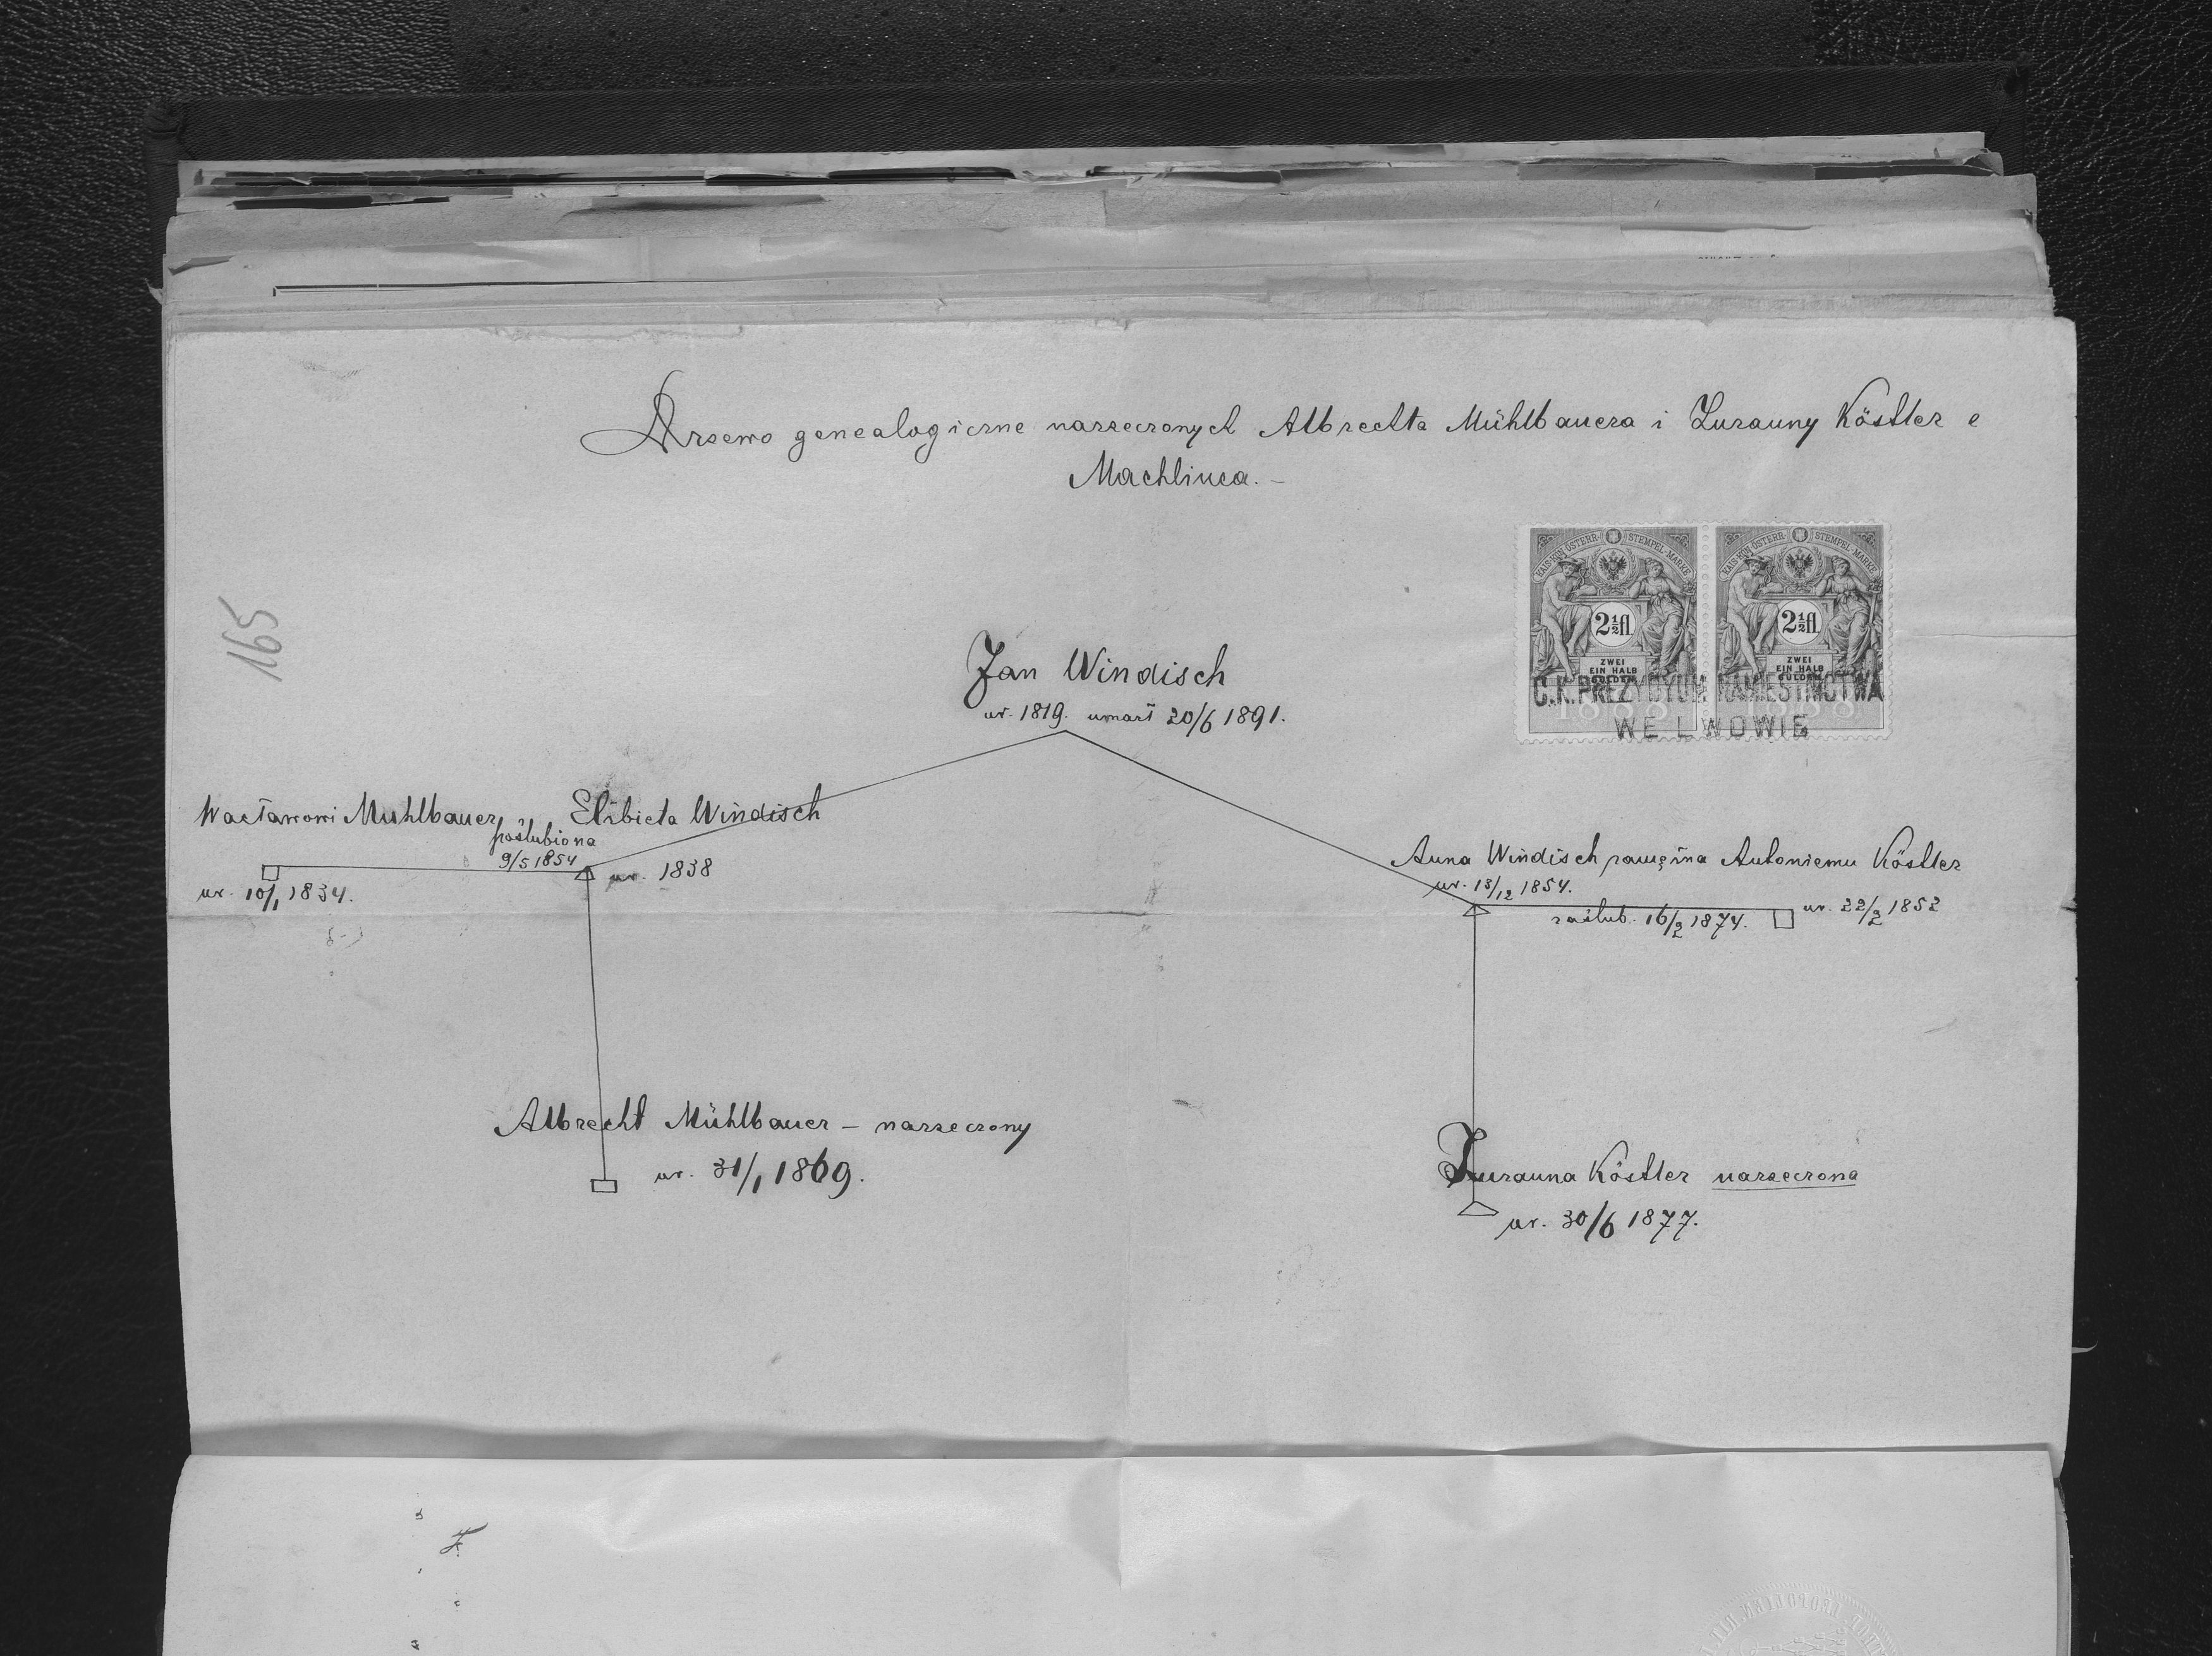 Drzewo genealogiczne narzeczonych Albrechta Mühlbauera i Zuzanny Köstler z
Machlinca. –
165
KAIS. KÖN. ÖSTERR. STEMPEL-MARKE
2½ fl.
ZWEI
EIN HALB
GULDEN
1888
KAIS. KÖN. ÖSTERR. STEMPEL-MARKE
2½ fl.
ZWEI
EIN HALB
GULDEN
1888
C.K. PREZYDYUM NAMIESTNICTWA
WE LWOWIE
Jan Windisch
ur. 1819. umarł 20/6 1891.
Wacławowi Muhlbauer
poślubiona
9/5 1854
ur. 10/1 1834.
Elżbieta Windisch
ur. 1838
Anna Windisch zamężna Antoniemu Köstler
ur. 13/12 1854.
zaślub. 16/2 1874.
ur. 22/2 1852
Albrecht Mühlbauer – narzeczony
ur. 31/1 1869.
Zuzanna Köstler narzeczona
ur. 30/6 1877.